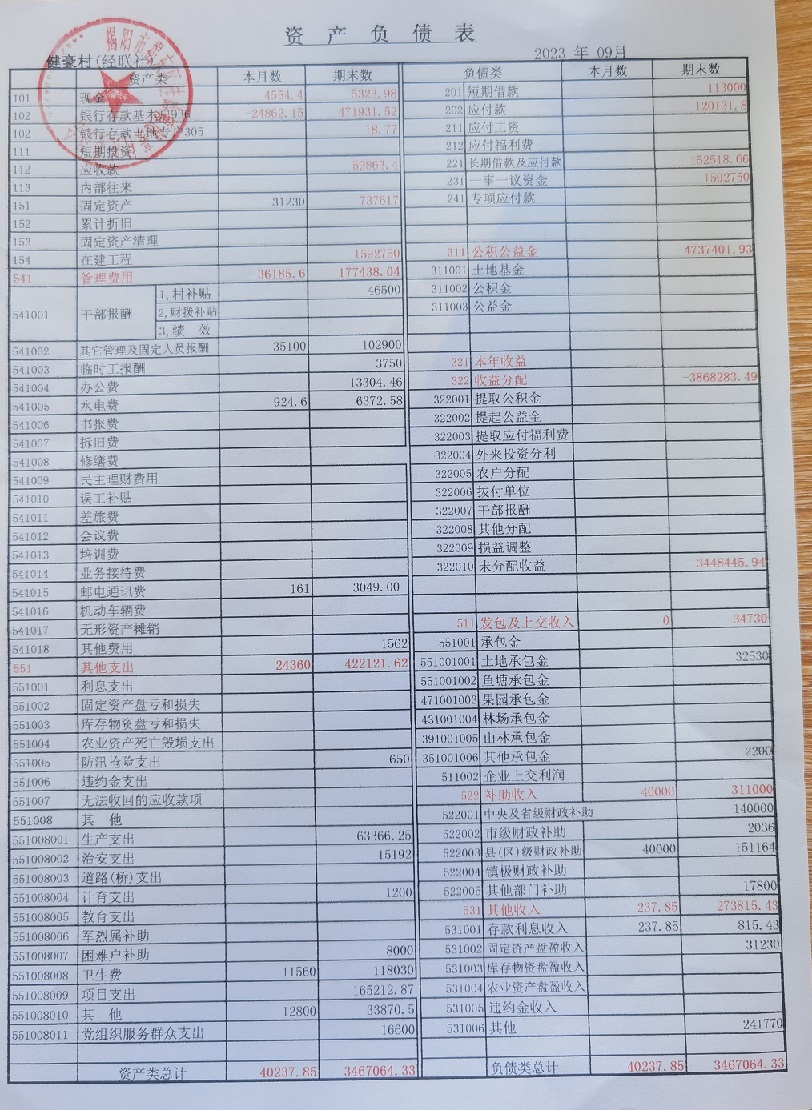 资产负债表
健豪村(经联社) 2023 年 09月
资产类 本月数 期末数 负债类 本月数 期末数
101 现金 4554.4 5323.98 201 短期借款 113000
102 银行存款基本 -24862.15 471931.52 202 应付款
102 305 18.77 211 应付工资
111 短期投资 212 应付福利费
112 应收款 221 长期借款及应付款 52518.66
113 内部往来 231 一事一议资金 1592750
151 固定资产 31230 737617 241 专项应付款
152 累计折旧
153 固定资产清理
154 在建工程 1592750 311 公积公益金 4737401.93
541 管理费用 36185.6 177438.04 311001 土地基金
541001 干部报酬 1,村补贴 46500 311002 公积金
2,财拨补贴 311003 公益金
3,绩 效
541002 其它管理及固定人员报酬 35100 102900
541003 临时工报酬 3750 321 本年收益
541004 办公费 13304.46 322 收益分配 -3868283.49
541005 水电费 924.6 6372.58 322001 提取公积金
541006 书报费 322002 提起公益金
541007 折旧费 322003 提取应付福利费
541008 修缮费 322004 外来投资分利
541009 民主理财费用 322005 农户分配
541010 误工补贴 322006 拨付单位
541011 差旅费 322007 干部报酬
541012 会议费 322008 其他分配
541013 培训费 322009 损益调整
541014 业务接待费 322010 未分配收益 3448445.94
541015 邮电通讯费 161 3049.00
541016 机动车辆费
541017 无形资产摊销 511 发包及上交收入 0 34730
541018 其他费用 1562 551001 承包金
551 其他支出 24360 422121.62 551001001 土地承包金 32530
551001 利息支出 551001002 鱼塘承包金
551002 固定资产盘亏和损失 471001003 果园承包金
551003 库存物资盘亏和损失 431001004 林场承包金
551004 农业资产死亡毁损支出 391001005 山林承包金
551005 防汛抢险支出 650 351001006 其他承包金 2200
551006 违约金支出 511002 企业上交利润
551007 无法收回的应收款项 522 补助收入 40000 311000
551008 其 他 522001 中央及省级财政补助 140000
551008001 生产支出 63366.25 522002 市级财政补助 2036
551008002 治安支出 15192 522003 县(区)级财政补助 40000 151164
551008003 道路(桥)支出 522004 镇级财政补助
551008004 计育支出 1200 522005 其他部门补助 17800
551008005 教育支出 531 其他收入 237.85 273815.43
551008006 军烈属补助 531001 存款利息收入 237.85 815.43
551008007 困难户补助 8000 531002 固定资产盘盈收入 31230
551008008 卫生费 11560 118030 531003 库存物资盘盈收入
551008009 项目支出 165212.87 531004 农业资产盘盈收入
551008010 其 他 12800 33870.5 531005 违约金收入
551008011 党组织服务群众支出 16600 531006 其他 241770
资产类总计 40237.85 3467064.33 负债类总计 40237.85 3467064.33